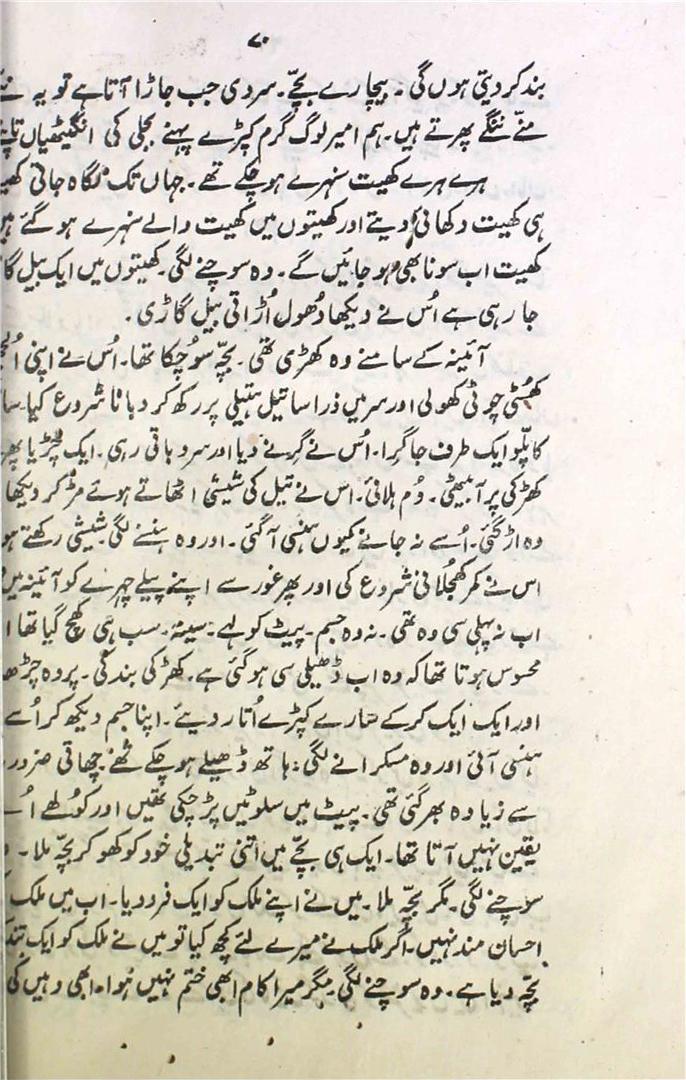 ۷۰
بند کر دیتی ہوں گی ۔ بیچارے بچّے۔ سردی جب جاڑا آتا ہے تو یہ
منّے ننگے پھرتے ہیں۔ ہم امیر لوگ گرم کپڑے پہنے بجلی کی انگیٹھیاں
ہرے ہرے کھیت سنہرے ہو چکے تھے۔ جہاں تک نگاہ جاتی
ہی کھیت دکھائی دیتے اور کھیتوں میں کھیت والے سنہرے ہو گئے
کھیت اب سونا بھی ہو جائیں گے۔ وہ سوچنے لگی۔ کھیتوں میں ایک بیل
جا رہی ہے اُس نے دیکھا دُھول اُڑاتی بیل گاڑی ۔
آئینہ کے سامنے وہ کھڑی تھی ۔ بچّہ سو چُکا تھا۔ اُس نے اپنی
چوٹی کھولی اور سر میں ذرا سا تیل ہتیلی پر رکھ کر دبانا شروع کیا۔
کا پلّو ایک طرف جا گرا۔ اُس نے گرنے دیا اور سر دباتی رہی۔ ایک چڑیا
کھڑکی پر آ بیٹھی۔ دُم ہلائی۔ اس نے تیل کی شیشی اٹھاتے ہوئے مڑ کر دیکھا
وہ اڑ گئی۔ اُسے نہ جانے کیوں ہنسی آ گئی۔ اور وہ ہنسنے لگی۔ شیشی رکھتے
اس نے کمر کھجلانی شروع کی اور پھر غور سے اپنے پیلے چہرے کو آئینہ
اب نہ پہلی سی وہ تھی۔ نہ وہ جسم۔ پیٹ کولہے۔ سینہ۔ سب ہی کھچ گیا تھا
محسوس ہوتا تھا کہ وہ اب ڈھیلی سی ہو گئی ہے۔ کھڑکی بند کی۔ پردہ
اور ایک ایک کر کے سارے کپڑے اُتار دیئے۔ اپنا جسم دیکھ کر اُسے
ہنسی آئی اور وہ مسکرانے لگی: ہاتھ ڈھیلے ہو چکے تھے چھاتی ضرور
سے زیادہ بھر گئی تھی۔ پیٹ میں سلوٹیں پڑ چکی تھیں اور کولھے
یقین نہیں آتا تھا۔ ایک ہی بچّے میں اتنی تبدیلی خود کو کھو کر بچّہ ملا۔
سوچنے لگی۔ مگر بچّہ ملا۔ میں نے اپنے ملک کو ایک فرد دیا۔ اب میں ملک
احسان مند نہیں۔ اگر ملک نے میرے لئے کچھ کیا تو میں نے ملک کو ایک
بچّہ دیا ہے۔ وہ سوچنے لگی۔ مگر میرا کام ابھی ختم نہیں ہُوا۔ ابھی وہیں کی